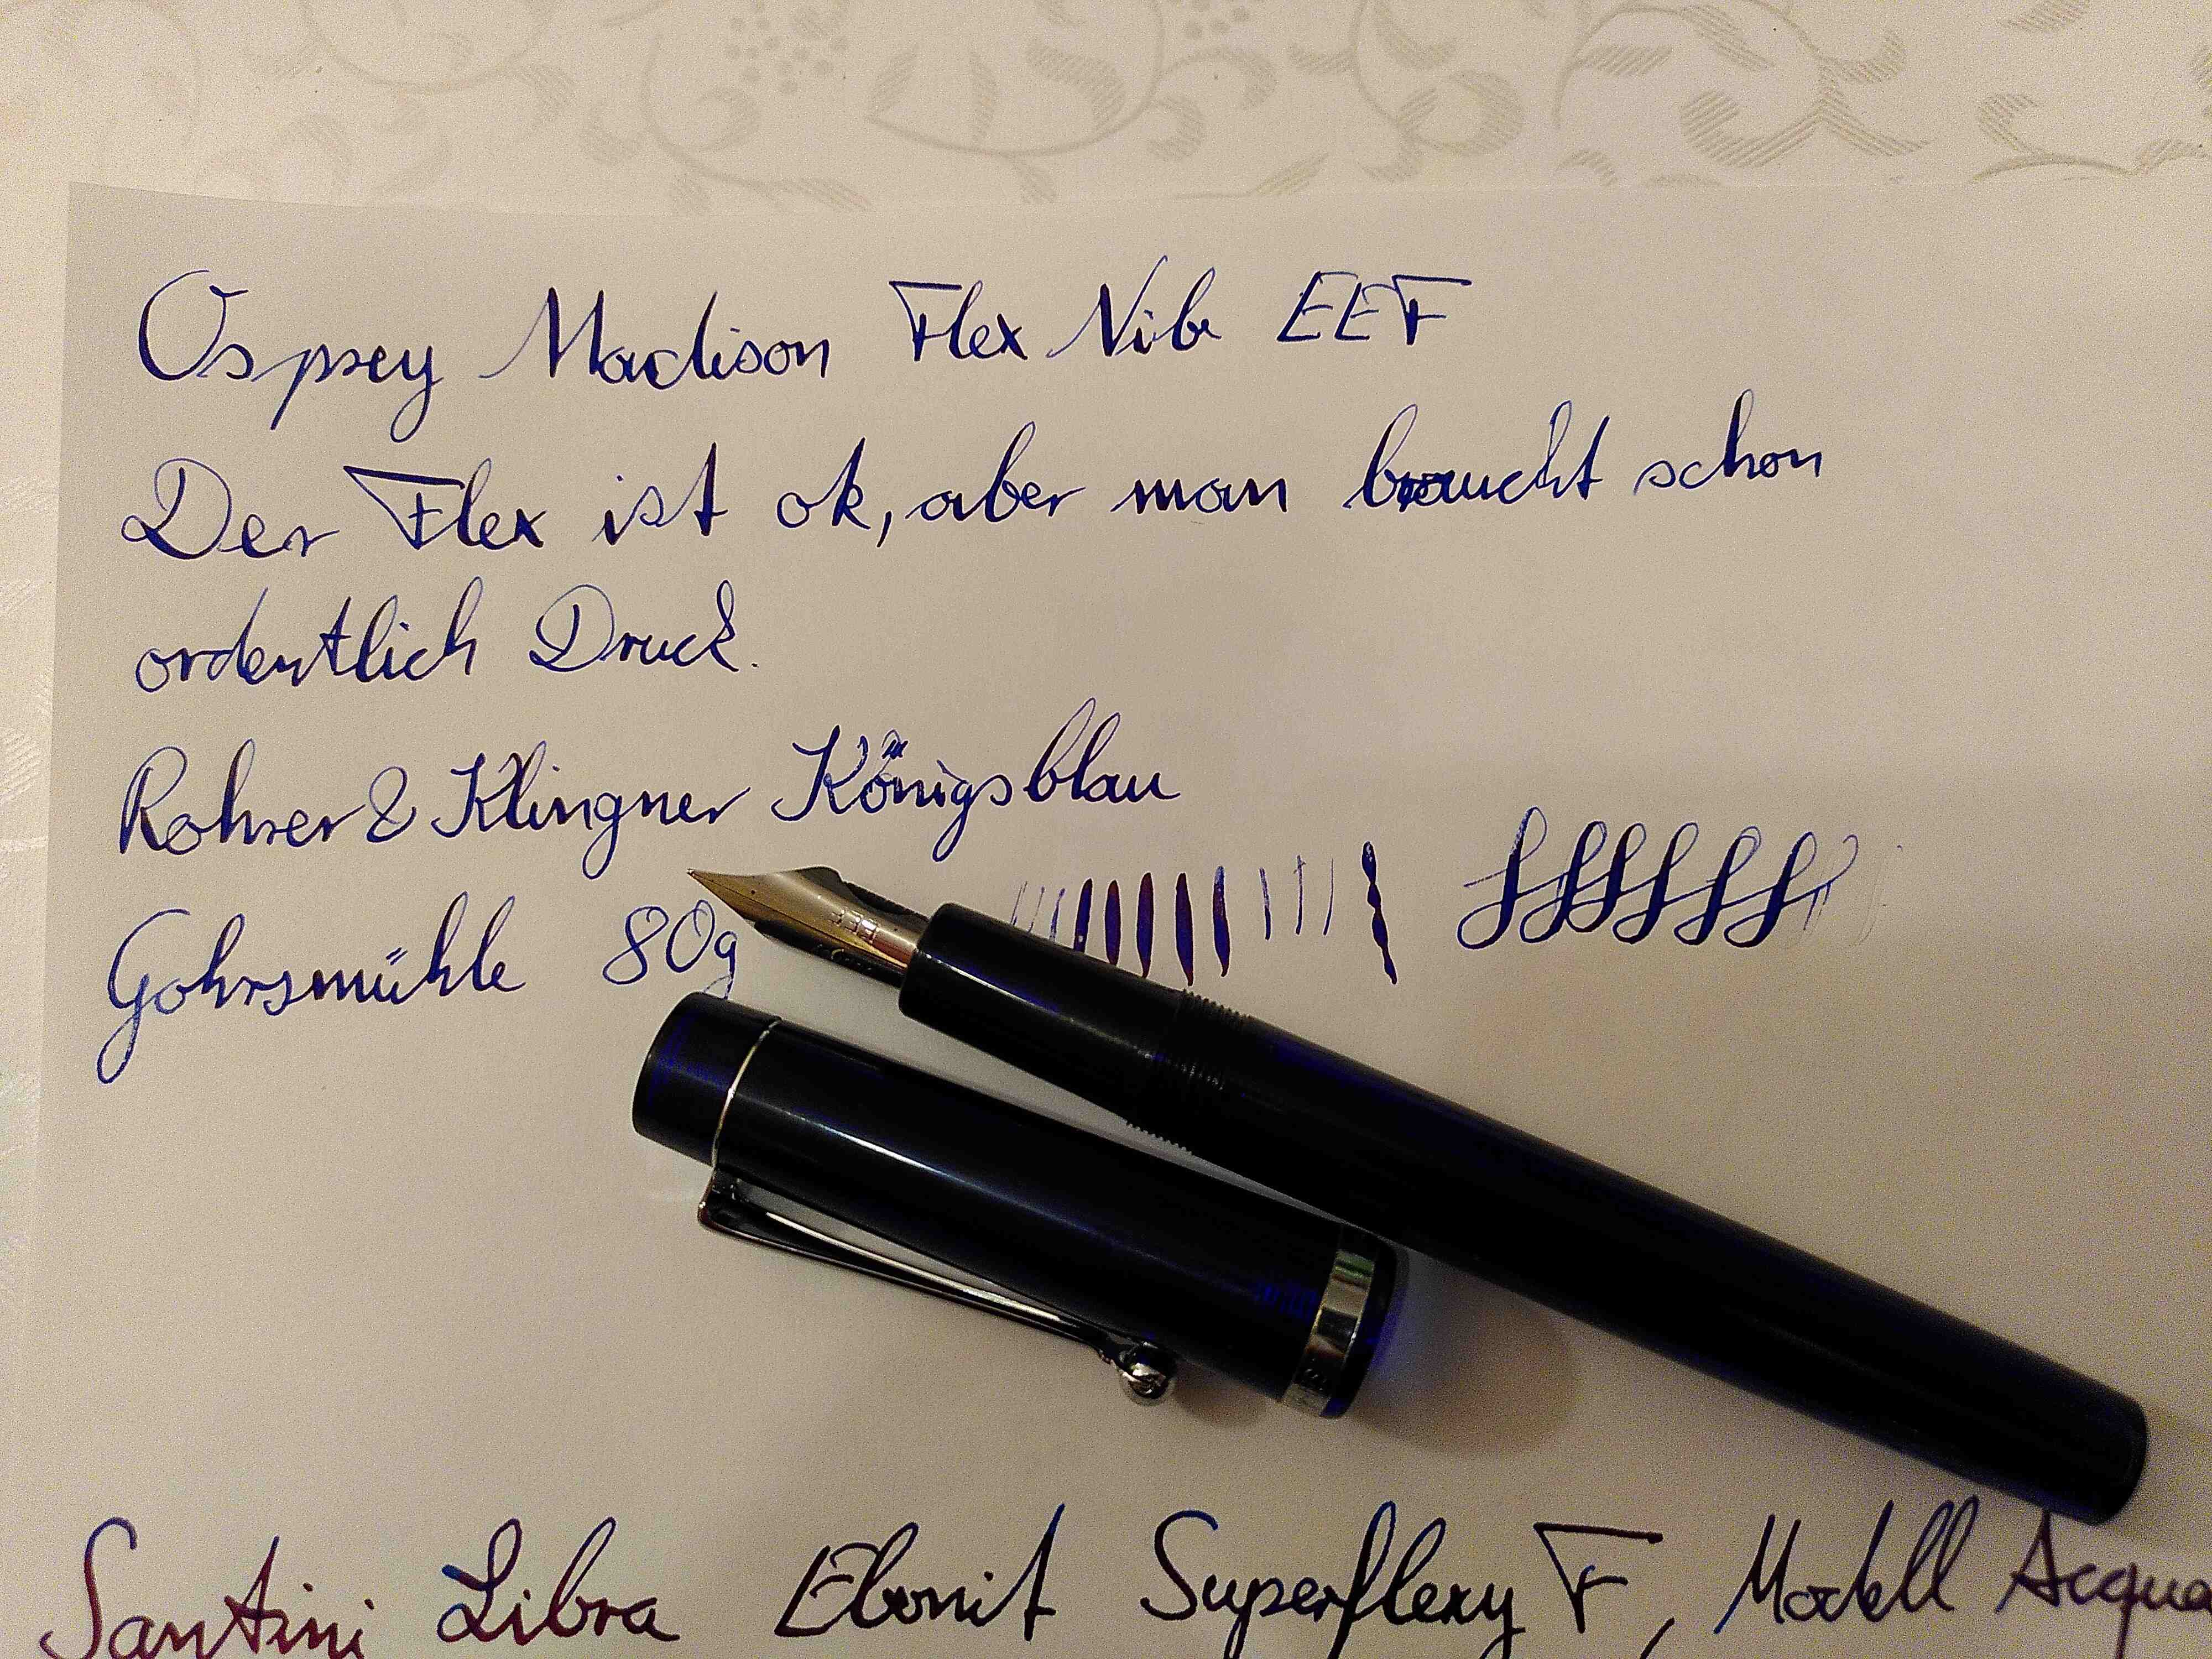 Osprey Madison Flex Nib EEF
Der Flex ist ok, aber man braucht schon
ordentlich Druck.
Rohrer & Klingner Königsblau
Gohrsmühle 80g
EEF
Santini Libra Ebonit Superflexy F, Modell Acqua